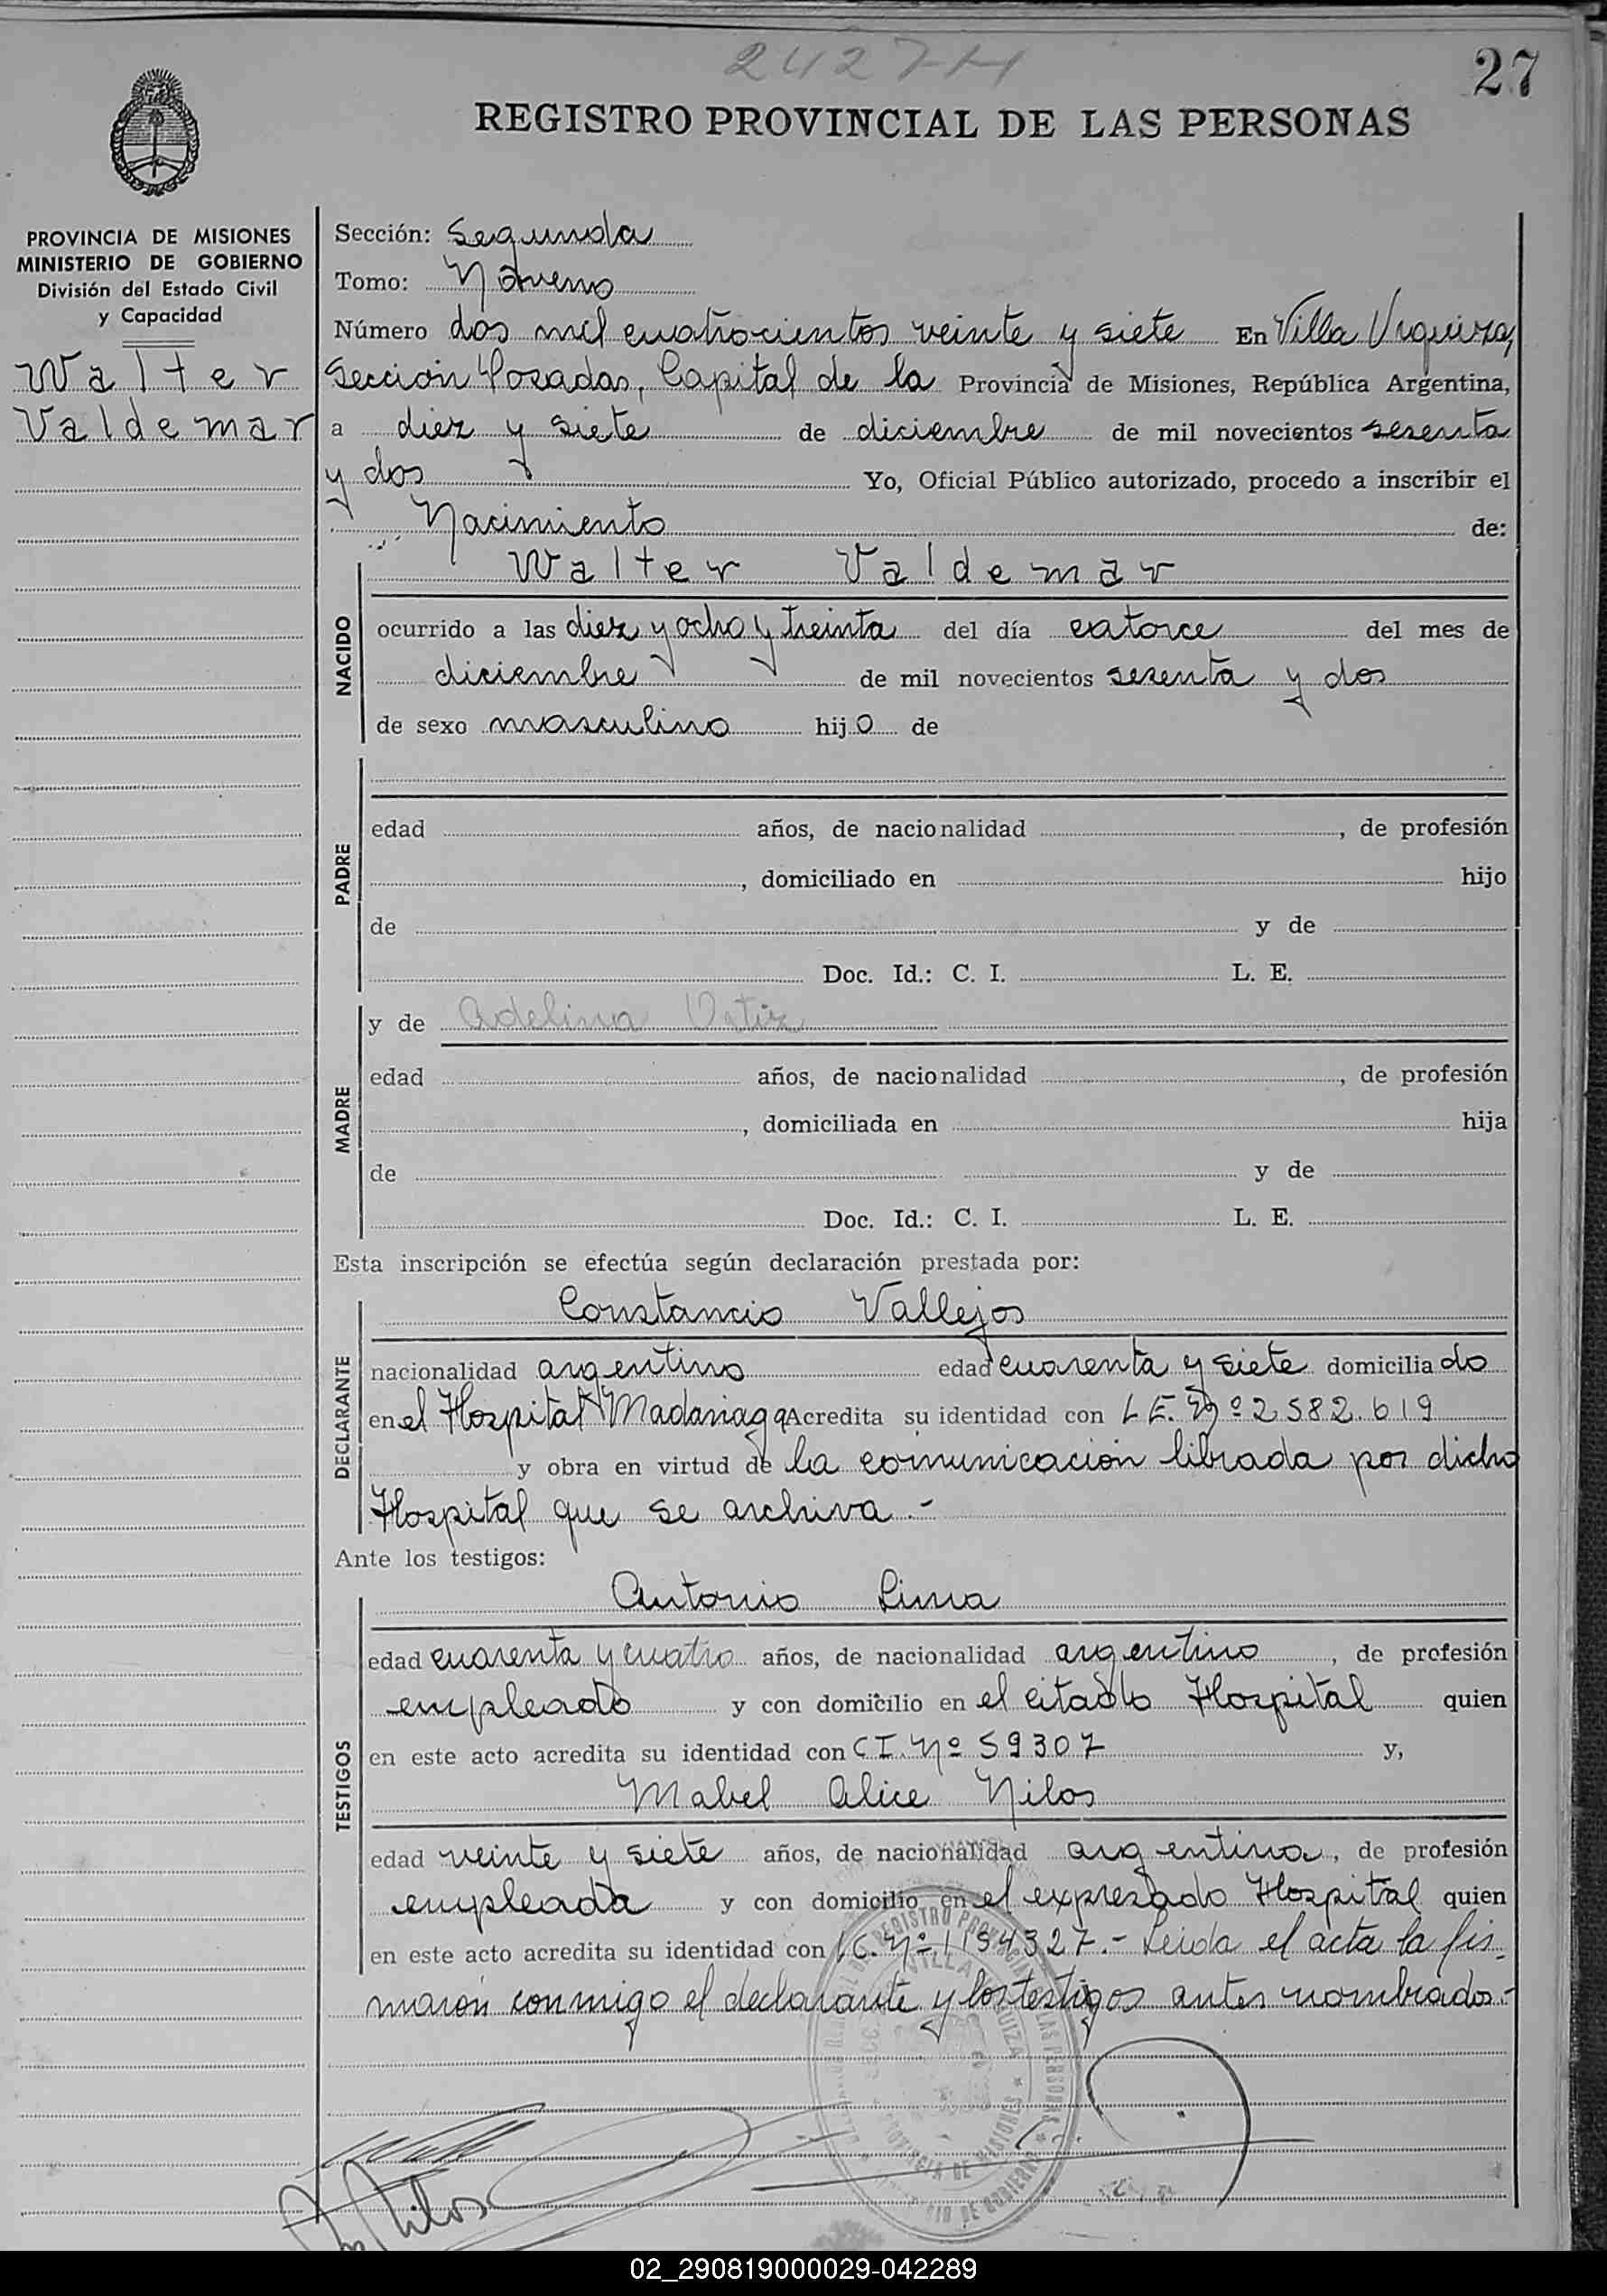 2427 M
27
REGISTRO PROVINCIAL DE LAS PERSONAS
PROVINCIA DE MISIONES
MINISTERIO DE GOBIERNO
División del Estado Civil
y Capacidad
Walter
Valdemar
Sección: Segunda
Tomo: Noveno
Número dos mil cuatrocientos veinte y siete En Villa Urquiza,
Sección Posadas, Capital de la Provincia de Misiones, República Argentina,
a diez y siete de diciembre de mil novecientos sesenta
y dos Yo, Oficial Público autorizado, procedo a inscribir el
Nacimiento de:
NACIDO
Walter Valdemar
ocurrido a las diez y ocho y treinta del día catorce del mes de
diciembre de mil novecientos sesenta y dos
de sexo masculino hijo de
PADRE
edad años, de nacionalidad , de profesión
, domiciliado en hijo
de y de
Doc. Id.: C. I. L. E.
MADRE
y de Adelina Ortiz
edad años, de nacionalidad , de profesión
, domiciliada en hija
de y de
Doc. Id.: C. I. L. E.
Esta inscripción se efectúa según declaración prestada por:
DECLARANTE
Constancio Vallejos
nacionalidad argentino edad cuarenta y siete domiciliado
en el Hospital Madariaga Acredita su identidad con L E. Nº 2582.619
y obra en virtud de la comunicación librada por dicho
Hospital que se archiva.-
Ante los testigos:
TESTIGOS
Antonio Lima
edad cuarenta y cuatro años, de nacionalidad argentino, de profesión
empleado y con domicilio en el citado Hospital quien
en este acto acredita su identidad con C I. Nº 59307 y,
Mabel Alice Nilos
edad veinte y siete años, de nacionalidad argentina, de profesión
empleada y con domicilio en el expresado Hospital quien
en este acto acredita su identidad con L C. Nº 1154327.- Leída el acta la fir-
maron conmigo el declarante y los testigos antes nombrados.-
Nilos
02_290819000029-042289